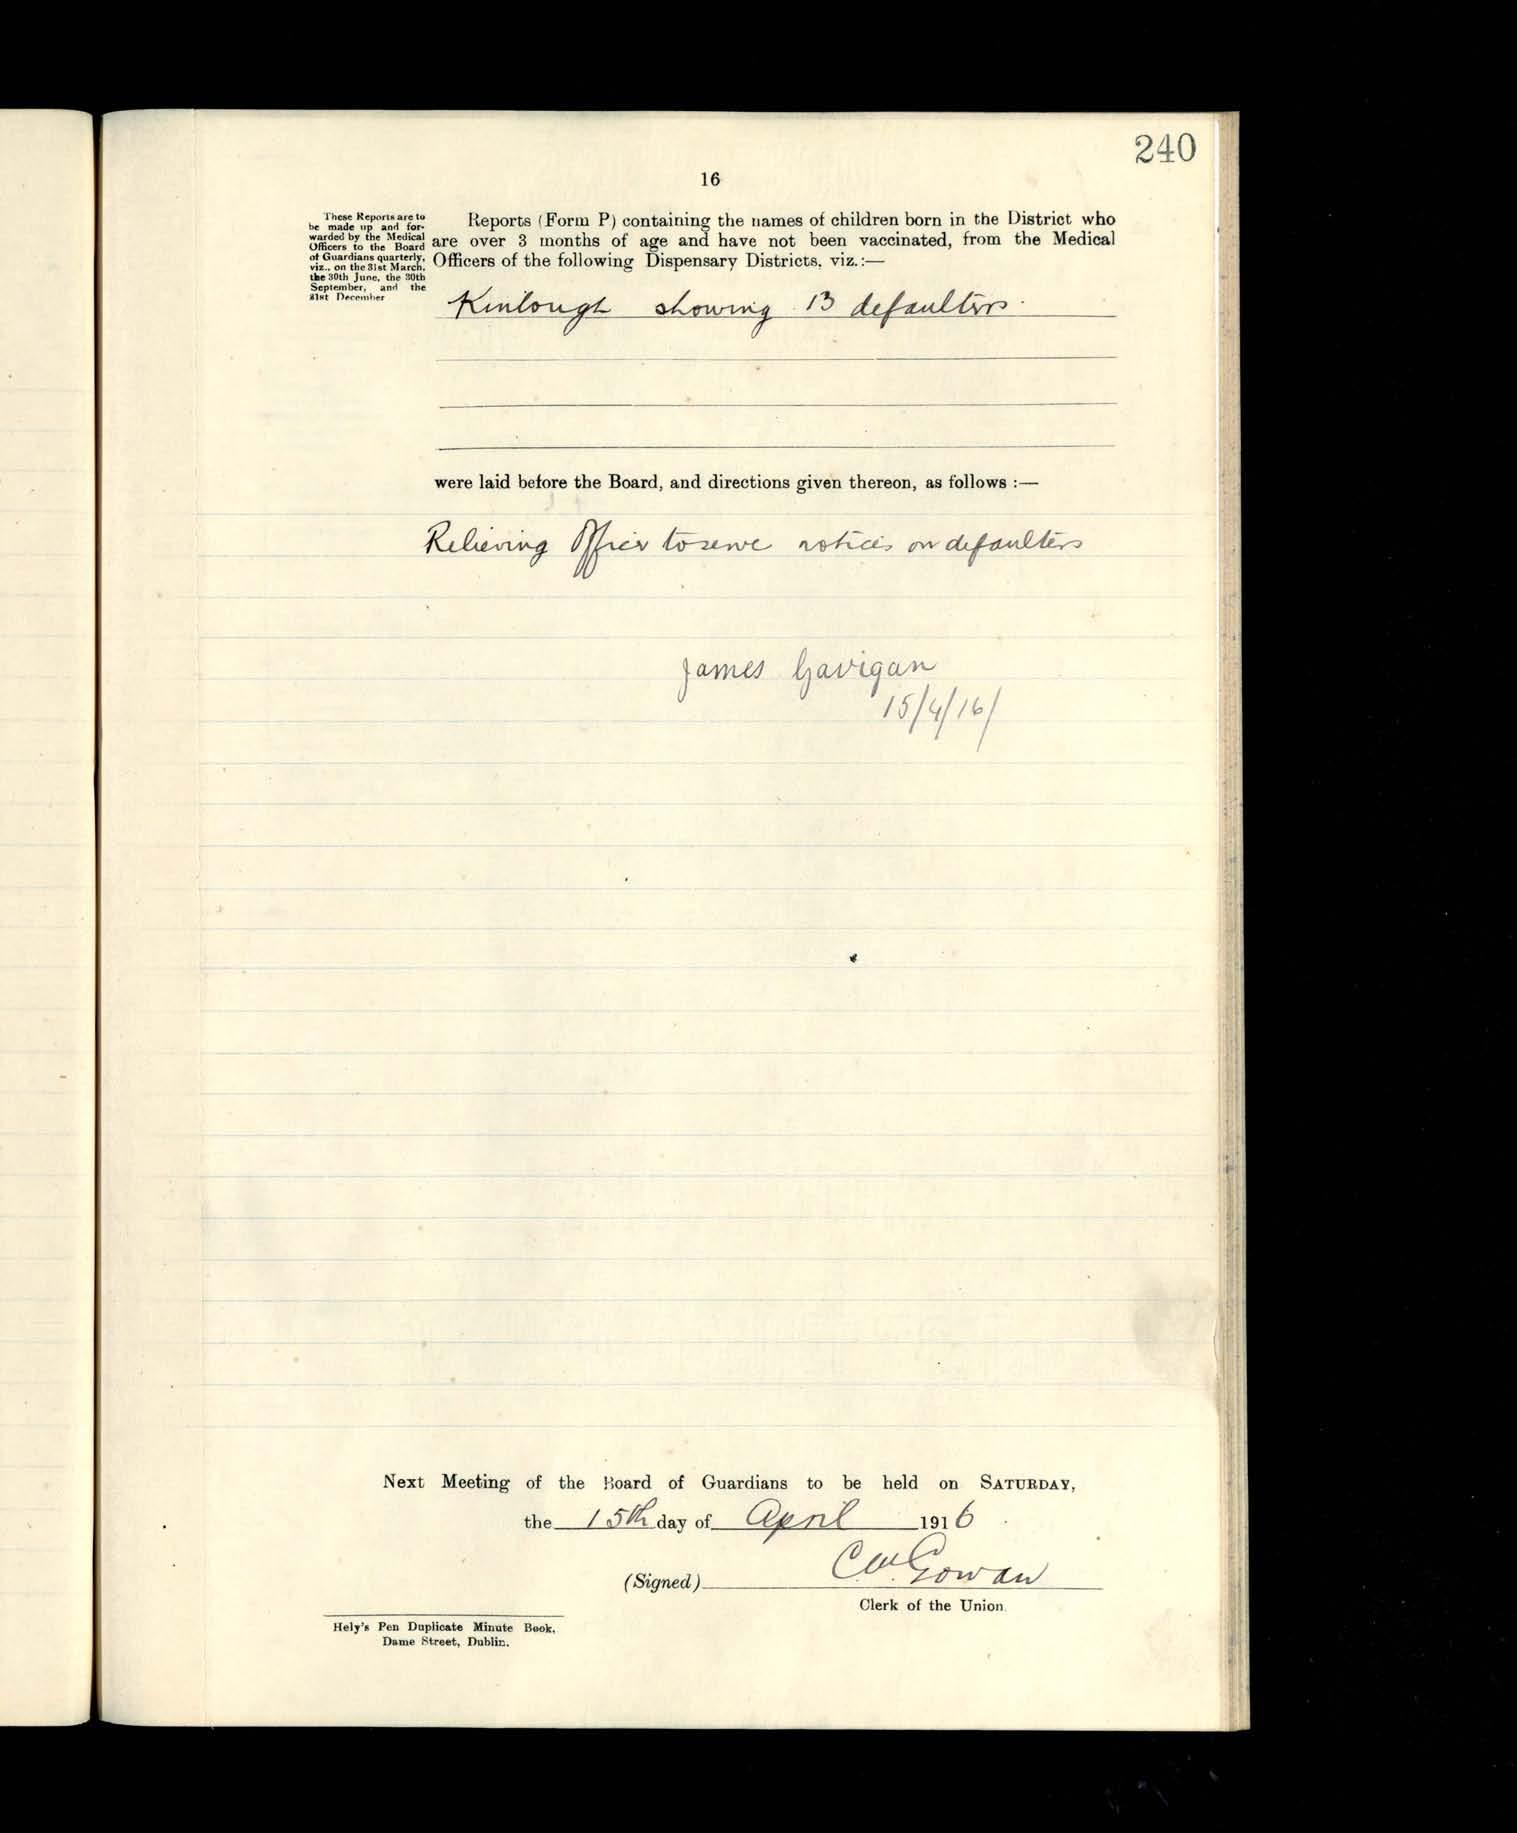 240
16
These Reports are to
be made up and for-
warded by the Medical
Officers to the Board
of Guardians quarterly,
viz., on the 31st March,
the 30th June, the 30th
September, and the
31st December
Reports (Form P) containing the names of children born in the District who
are over 3 months of age and have not been vaccinated, from the Medical
Officers of the following Dispensary Districts, viz.:—
Kinlough showing 13 defaulters.
were laid before the Board, and directions given thereon, as follows :—
Relieving Officer to serve notices on defaulters
James Gavigan
15/4/16/
Next Meeting of the Board of Guardians to be held on SATURDAY,
the 15th day of April 1916
(Signed) C McGowan
Clerk of the Union.
Hely's Pen Duplicate Minute Book,
Dame Street, Dublin.